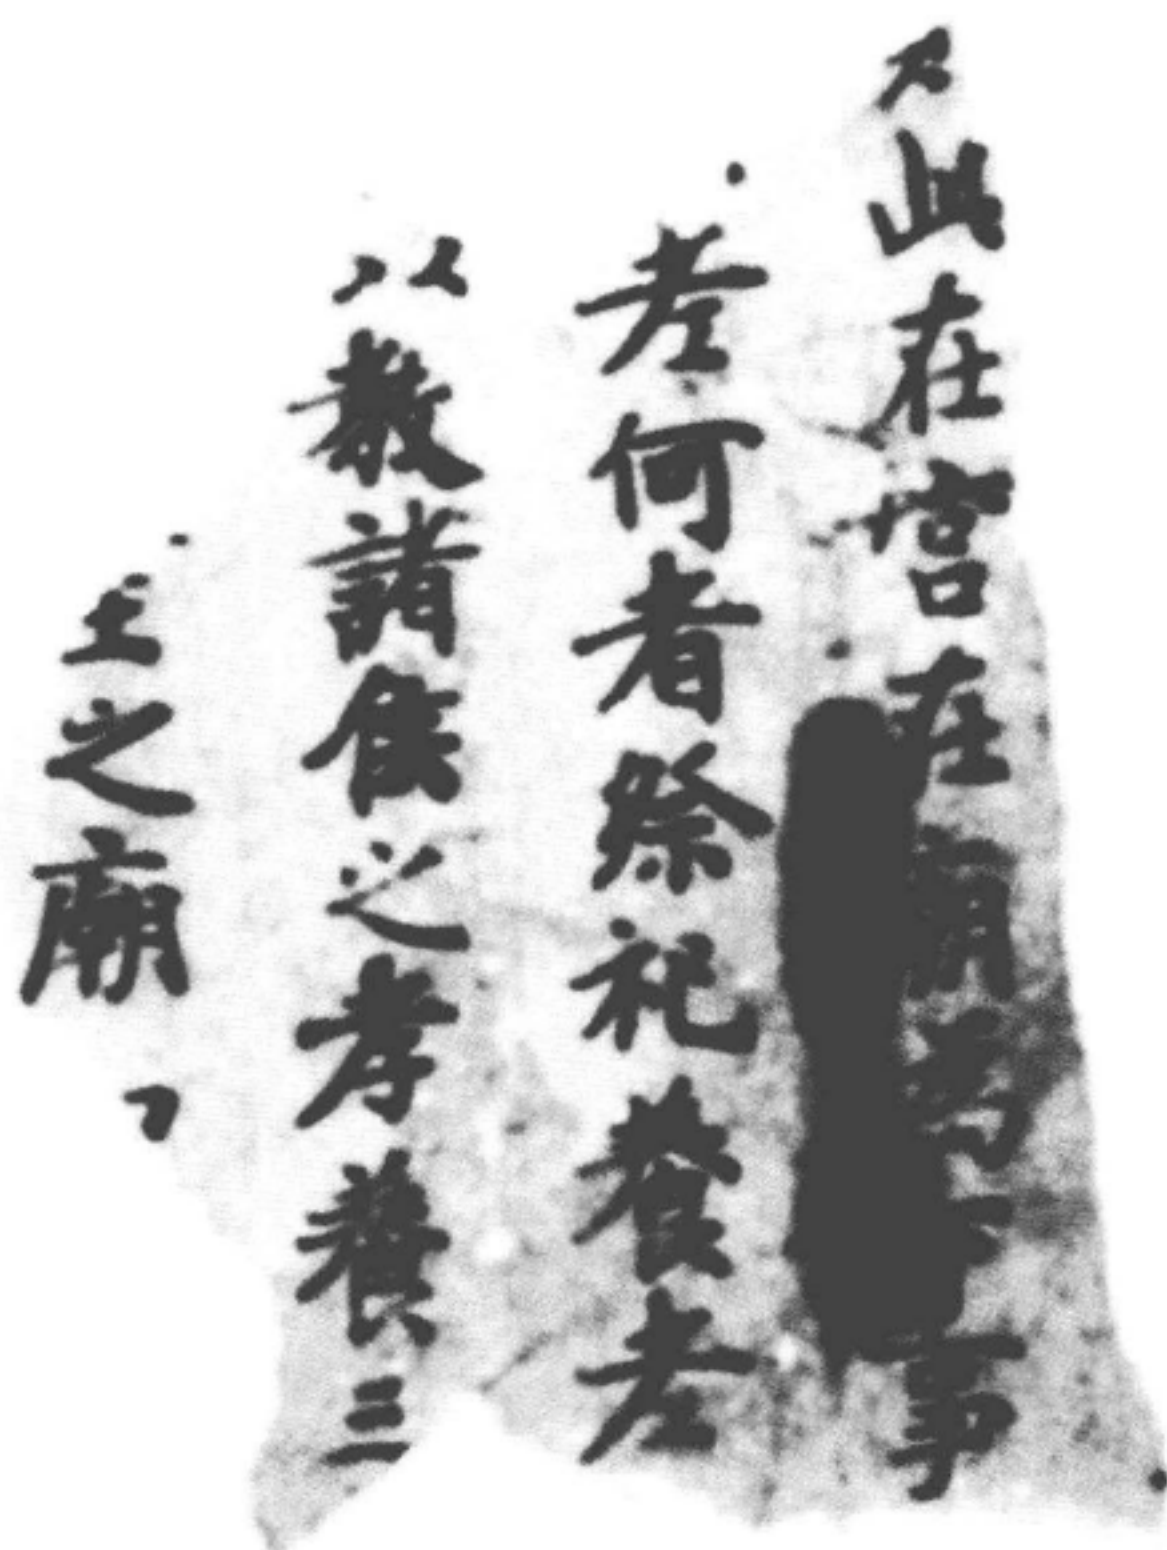 此在宮在廟爲事
老何者祭祀養老
以教諸侯之孝養三
王之廟